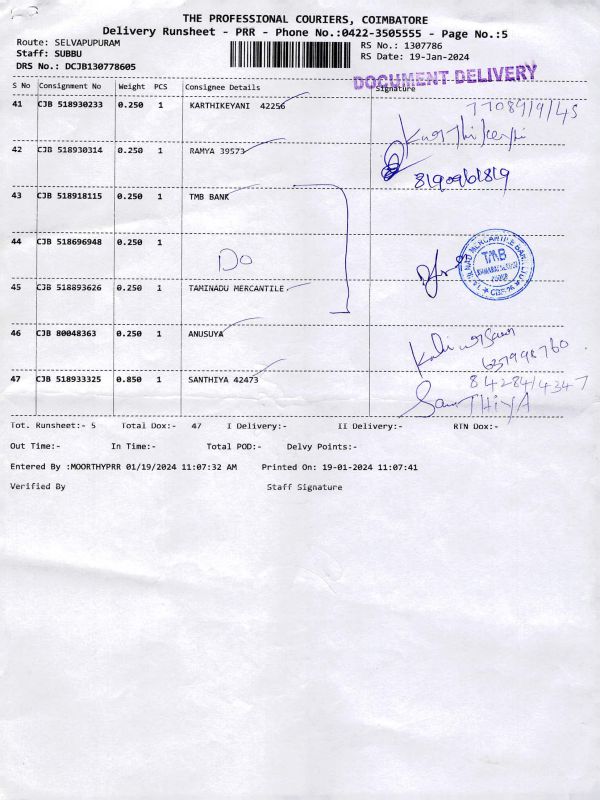 THE PROFESSIONAL COURIERS, COIMBATORE
Delivery Runsheet - PRR - Phone No.:0422-3505555 - Page No.:5
Route: SELVAPUPURAM
Staff: SUBBU
DRS No.: DCJB130778605
RS No.: 1307786
RS Date: 19-Jan-2024
DOCUMENT DELIVERY
S No Consignment No Weight PCS Consignee Details Signature
41 CJB 518930233 0.250 1 KARTHIKEYANI 42256
42 CJB 518930314 0.250 1 RAMYA 39573
8190961819
43 CJB 518918115 0.250 1 TMB BANK
44 CJB 518696948 0.250 1
DO
TMB
45 CJB 518893626 0.250 1 TAMINADU MERCANTILE
46 CJB 80048363 0.250 1 ANUSUYA
47 CJB 518933325 0.850 1 SANTHIYA 42473
8428414347
SanTHiYA
Tot. Runsheet:- 5 Total Dox:- 47 I Delivery:- II Delivery:- RTN Dox:-
Out Time:- In Time:- Total POD:- Delvy Points:-
Entered By :MOORTHYPRR 01/19/2024 11:07:32 AM Printed On: 19-01-2024 11:07:41
Verified By Staff Signature